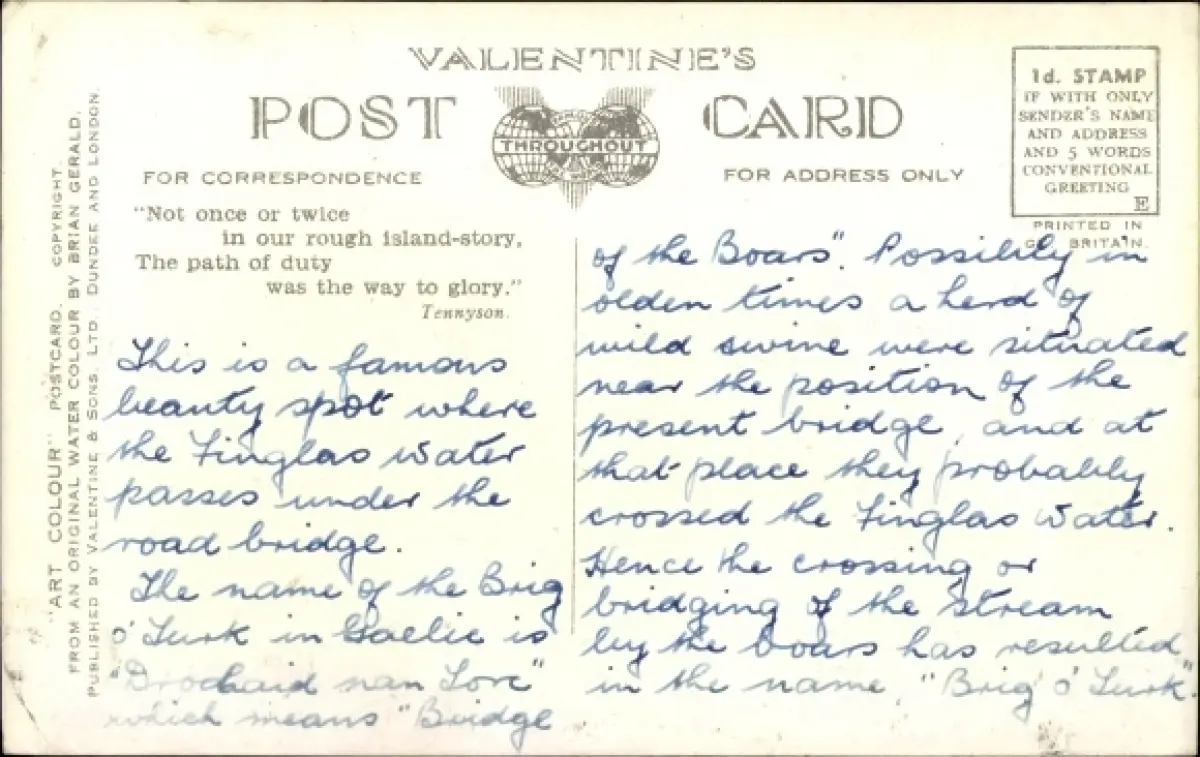 VALENTINE'S
POST CARD
THROUGHOUT
FOR CORRESPONDENCE
FOR ADDRESS ONLY
1d. STAMP
IF WITH ONLY
SENDER'S NAME
AND ADDRESS
AND 5 WORDS
CONVENTIONAL
GREETING
E
PRINTED IN
GT. BRITAIN.
"ART COLOUR" POSTCARD. COPYRIGHT.
FROM AN ORIGINAL WATER COLOUR BY BRIAN GERALD.
PUBLISHED BY VALENTINE & SONS, LTD., DUNDEE AND LONDON.
"Not once or twice
in our rough island-story,
The path of duty
was the way to glory."
Tennyson.
This is a famous
beauty spot where
the Finglas Water
passes under the
road bridge.
The name of the Brig
o' Turk in Gaelic is
"Drochaid nan Torc"
which means "Bridge
of the Boars". Possibily in
olden times a herd of
wild swine were situated
near the position of the
present bridge, and at
that place they probably
crossed the Finglas Water.
Hence the crossing or
bridging of the stream
by the boars has resulted
in the name "Brig o' Turk".